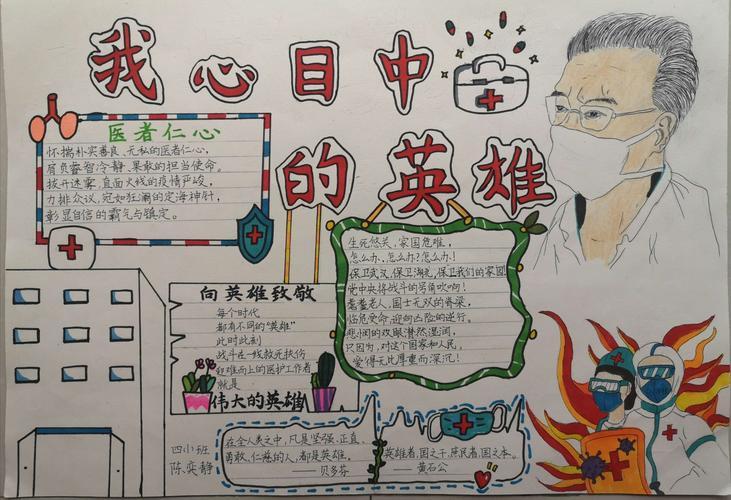 我心目中
的英雄
医者仁心
怀揣朴实善良、无私的医者仁心,
肩负睿智冷静、果敢的担当使命。
拨开迷雾,直面火线的疫情严峻,
力排众议,宛如狂澜的定海神针,
彰显自信的霸气与镇定。
生死悠关,家国危难,
怎么办,怎么办?怎么办!
保卫武汉,保卫湖北,保卫我们的家园
党中央将战斗的号角吹响!
耄耋老人,国士无双的脊梁,
临危受命,迎向凶险的逆行。
悲悯的双眼潸然湿润,
只因为,对这个国家和人民,
爱得无比厚重而深沉!
向英雄致敬
每个时代
都有不同的“英雄”
此时此刻
战斗在一线救死扶伤
和难而上的医护工作者
就是
伟大的英雄
四小班
陈奕静
在全人类之中,凡是坚强、正直、
勇敢、仁慈的人,都是英雄。
——贝多芬
英雄者,国之干,庶民者,国之本。
——黄石公